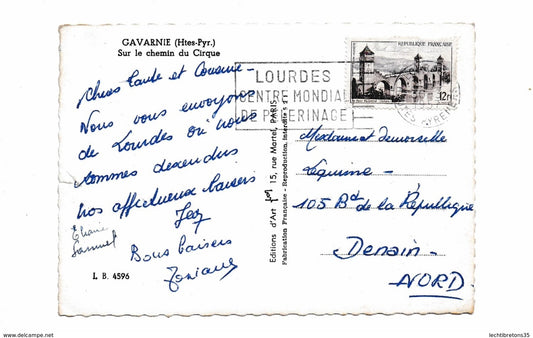 GAVARNIE (Htes-Pyr.)
Sur le chemin du Cirque
Chères tante et Cousine
Nous vous envoyons
de Lourdes où nous
sommes descendus
nos affectueux baisers
Jez
Bons baisers
L B. 4596
Editions d'Art 15, rue Martel, PARIS
Fabrication Française - Reproduction interdite
LOURDES
CENTRE MONDIAL
DE PELERINAGE
REPUBLIQUE FRANÇAISE
12F
Madame et Demoiselle
Lequime
105 Bd de la République
Denain
NORD
delcampe.net
lechtibretons35